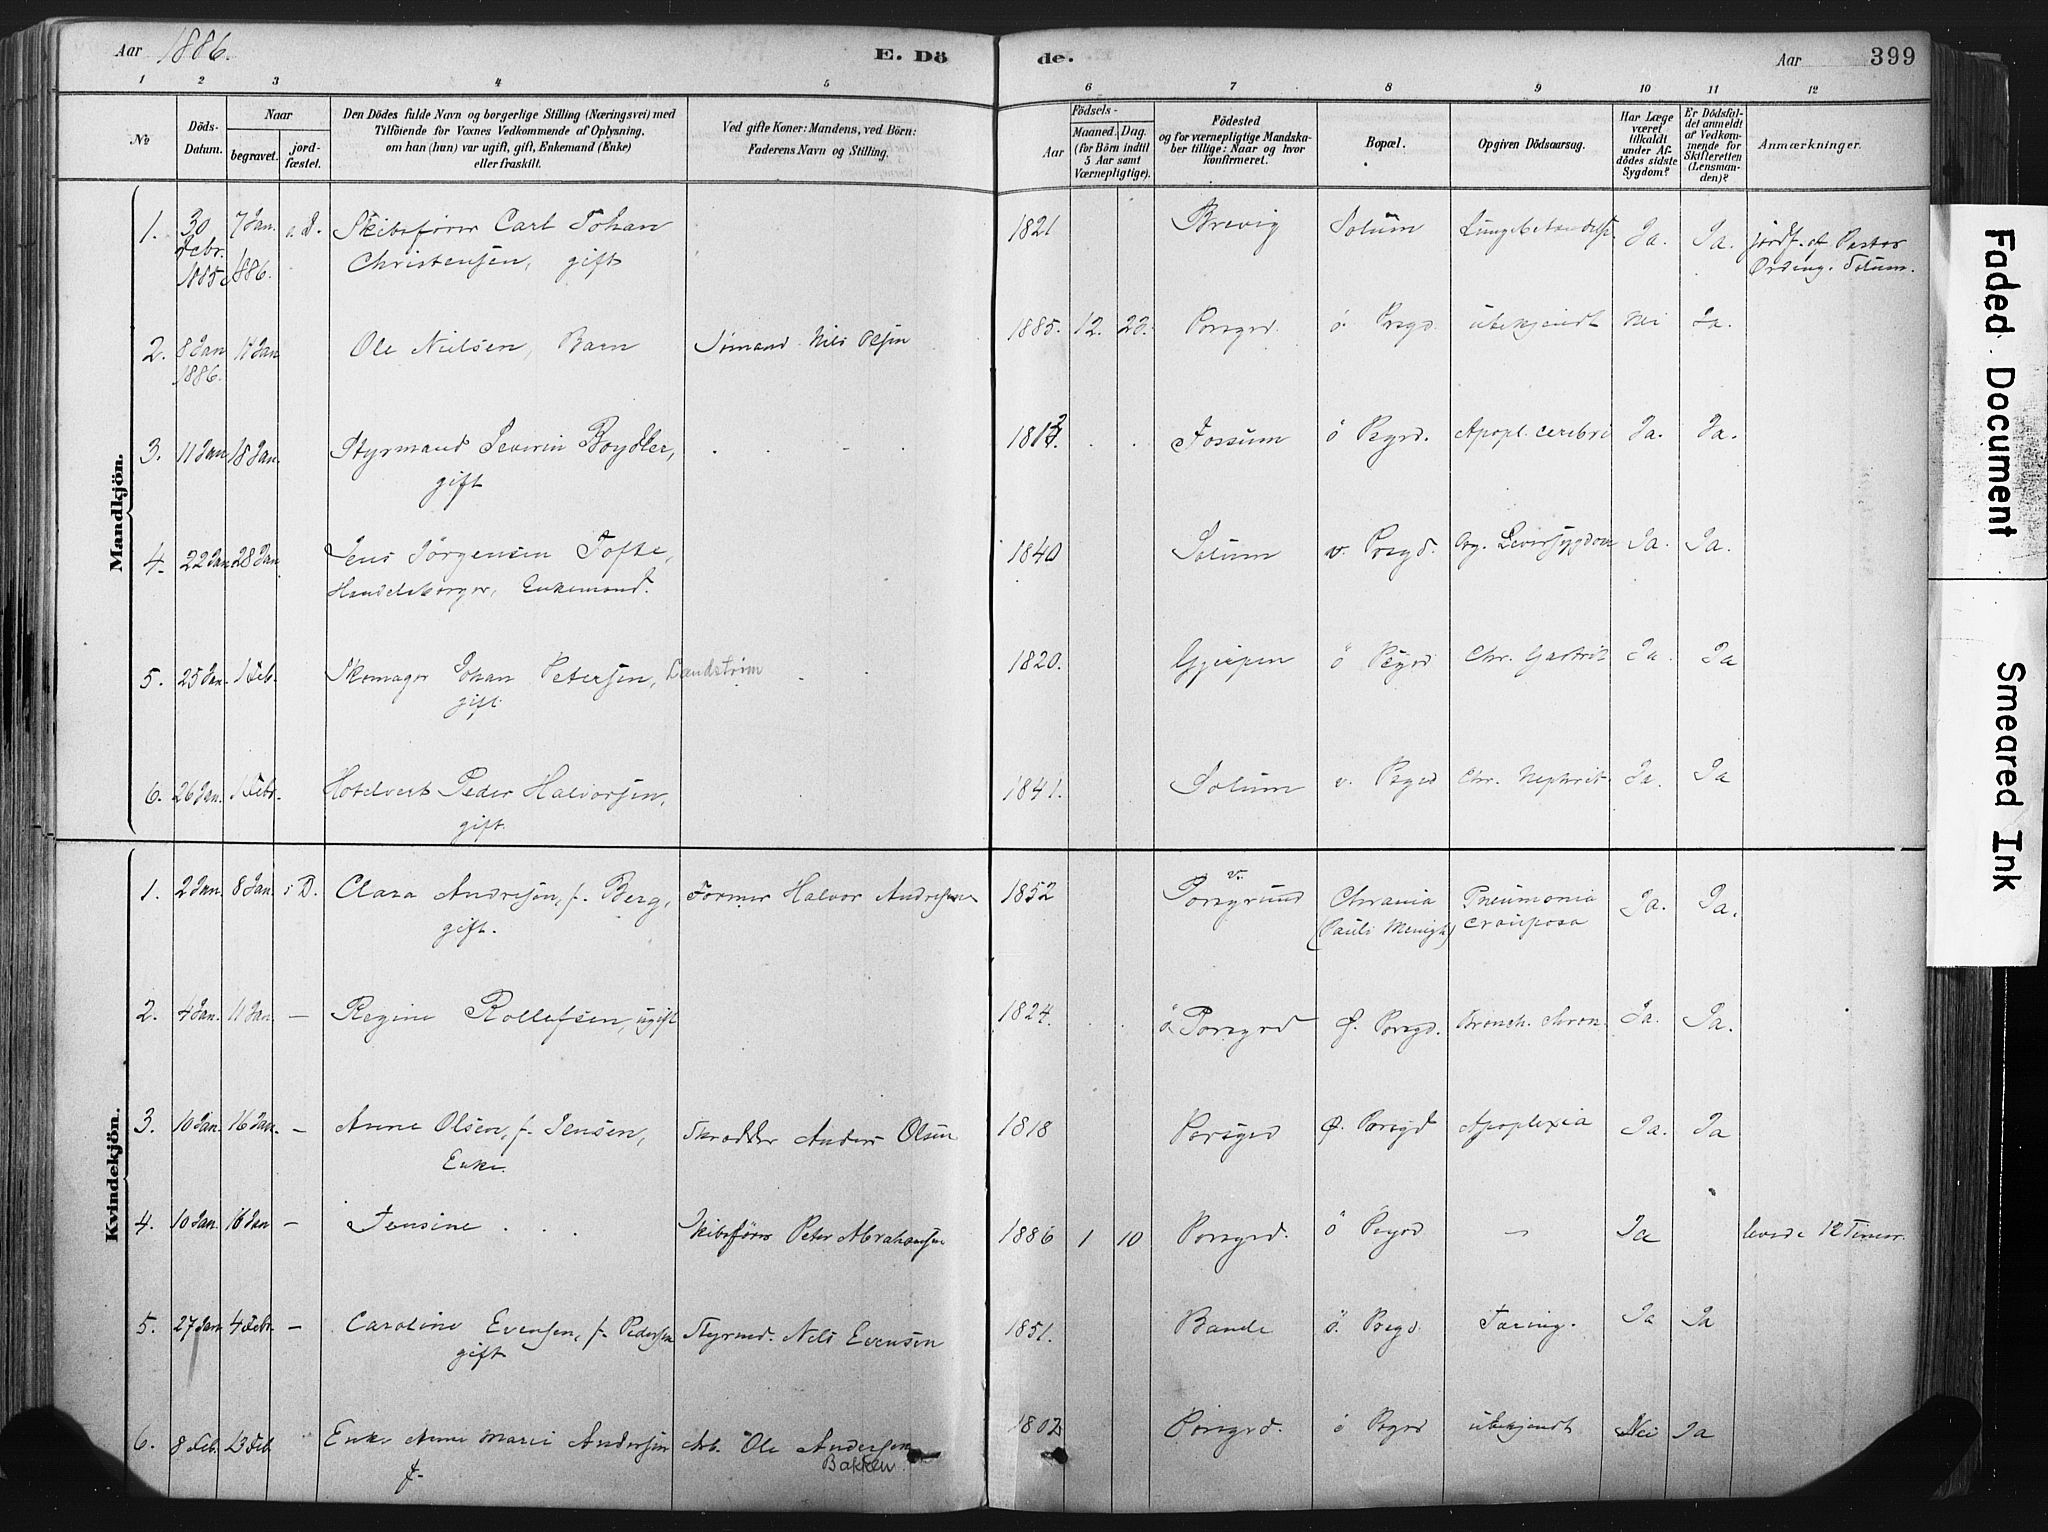 Aar 1886. E. Dö
de. Aar 399
1 2 3 4 5 6 7 8 9 10 11 12
No
Döds-
Datum.
Naar
begravet.
jord-
fæstet.
Den Dödes fulde Navn og borgerlige Stilling (Næringsvei) med
Tilföiende for Voxnes Vedkommende af Oplysning,
om han (hun) var ugift, gift, Enkemand (Enke)
eller fraskilt.
Ved gifte Koner: Mandens, ved Börn:
Faderens Navn og Stilling.
Födsels-
Aar
Maaned. Dag.
(for Börn indtil
5 Aar samt
Værnepligtige).
Födested
og for værnepligtige Mandska-
ber tillige: Naar og hvor
konfirmeret.
Bopæl.
Opgiven Dödsaarsag.
Har Læge
været
tilkaldt
under Af-
dödes sidste
Sygdom?
Er Dödsfal-
det anmeldt
af Vedkom-
mende for
Skifteretten
(Lensman-
den)?
Anmærkninger.
Mandkjön.
1. 30 7 Jan. Skibsfører Carl Johan 1821 Brevig Solum Ja. Ja. jordf. af Pastor
1885 1886. Christensen, gift Ording. Solum.
2. 8 Jan 11 Jan Ole Nielsen, Barn Sømand Nils Olsen 1885. 12. 23. Porsgrd. ö. Prsgd. ubekjendt Nei Ja.
1886.
3. 11 Jan 18 Jan. Styrmand Severin Boydler, Fossum ö Psgrd. Apopl. cerebri Ja. Ja.
gift
4. 22 Jan 28 Jan Jens Jörgensen Tofte, 1840 Solum v. Prsgd. Org. Leversygdom Ja. Ja.
Handelsborger, Enkemand.
5. 25 Jan. 1 Feb. Skomager Johan Petersen, Landström 1820. Gjerpen ö Psgrd Chr. Gastrit Ja. Ja
gift
6. 26 Jan. 1 Febr. Hotelvert Peder Halvorsen, 1841. Solum v. Psgrd Chr. Nephrit. Ja. Ja
gift.
Kvindekjön.
1. 2 Jan. 8 Jan. i D. Clara Andresen, f. Berg, Former Halvor Andresen 1852 v. Porsgrund Chrania Pneumonia Ja. Ja.
gift. (Pauli Menigh) crouposa
2. 4 Jan. 11 Jan. — Regine Rollefsen, ugift 1824. ö Porsgrd Ø. Porsgd. Bronch. chron. Ja. Ja.
3. 10 Jan. 16 Jan. — Anne Olsen, f. Jensen, Skrædder Anders Olsen 1818 Porsgrd Ø. Porsgd Apoplexia Ja. Ja
Enke.
4. 10 Jan. 16 Jan — Jensine Skibsfører Peter Abrahamsen 1886 1 10 Porsgrd. ö Psgrd — Ja levede 12 Timer.
5. 27 Jan 4 Febr. — Caroline Evensen, f. Pedersen Styrmd. Nils Evensen 1851. Bamle ö. Prsgd. Tæring. Ja Ja
gift
6. 8 Feb. 13 Feb Enke Anne Marie Andersen Arb. Ole Andersen 1802 Porsgrd. ö Psgrd ubekjendt Nei Ja
f. Bakken
Faded Document
Smeared Ink